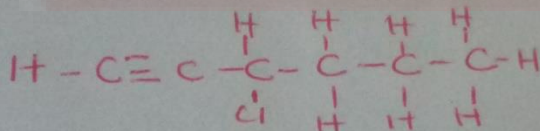 H H H H
H - C ≡ C - C - C - C - C - H
Cl H H H